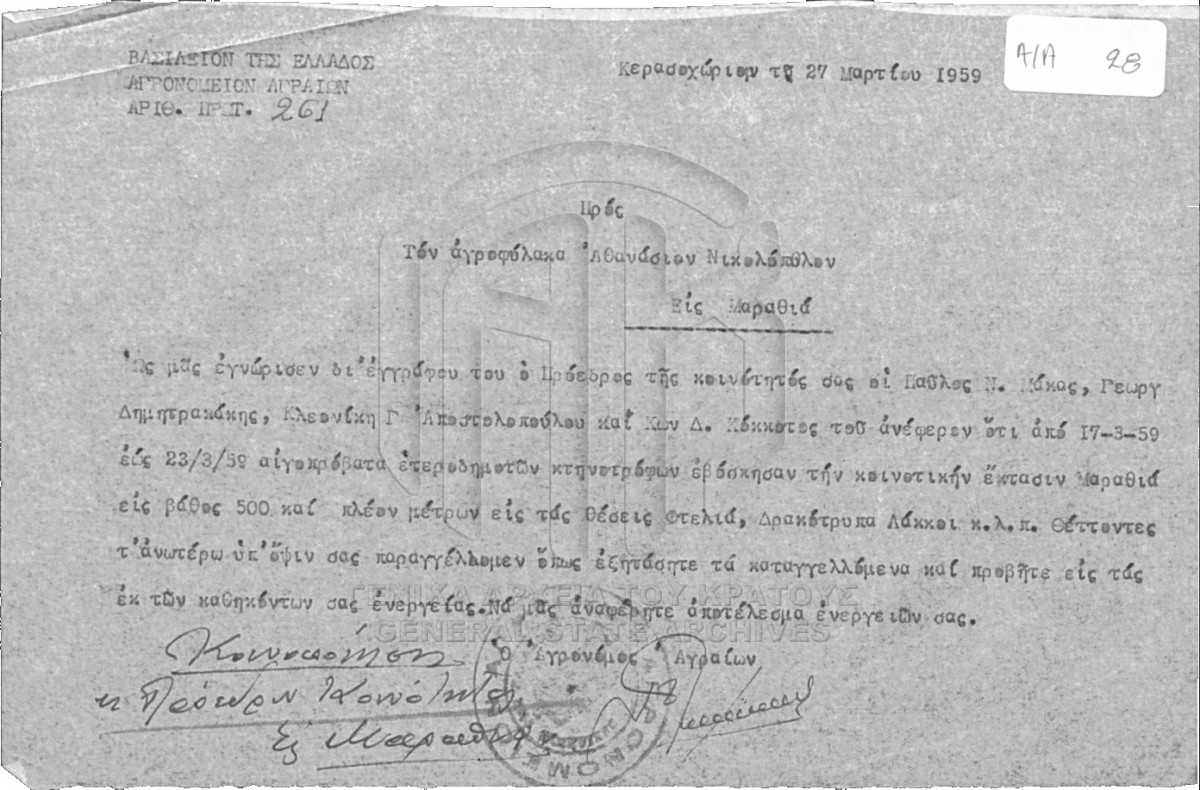 ΒΑΣΙΛΕΙΟΝ ΤΗΣ ΕΛΛΑΔΟΣ
ΑΓΡΟΝΟΜΕΙΟΝ ΑΓΡΑΙΩΝ
ΑΡΙΘ. ΠΡΩΤ. 261
Κερασοχώριον τῇ 27 Μαρτίου 1959
Α/Α 28
Πρός
Τόν ἀγροφύλακα Ἀθανάσιον Νικολόπουλον
Εἰς Μαραθιά
Ὡς μᾶς ἐγνώρισεν δι'ἐγγράφου του ὁ Πρόεδρος τῆς κοινότητός σας οἱ Παῦλος Ν. Μάκας, Γεωργ
Δημητρακάκης, Κλεονίκη Γ. Ἀποστολοπούλου καί Κων Δ. Κόκκοτος τοῦ ἀνέφερον ὅτι ἀπό 17-3-59
ἑώς 23/3/59 αἰγοπρόβατα ἑτεροδημοτῶν κτηνοτρόφων ἐβόσκησαν τήν κοινοτικήν ἔκτασιν Μαραθιά
εἰς βάθος 500 καί πλέον μέτρων εἰς τάς θέσεις Φτελιά, Δρακότρυπα Λάκκοι κ.λ.π. Θέττοντες
τ'ἀνωτέρω ὑπ'ὄψιν σας παραγγέλλομεν ὅπως ἐξητάσητε τά καταγγελλόμενα καί προβῆτε εἰς τάς
ἐκ τῶν καθηκόντων σας ἐνεργείας.Νά μᾶς ἀναφέρητε ἀποτέλεσμα ἐνεργειῶν σας.
ΓΕΝΙΚΑ ΑΡΧΕΙΑ ΤΟΥ ΚΡΑΤΟΥΣ
GENERAL STATE ARCHIVES
Ὁ Ἀγρονόμος Ἀγραίων
Κοινοποίησις
Πρόεδρον Κοινότητος
Εἰς Μαραθιά